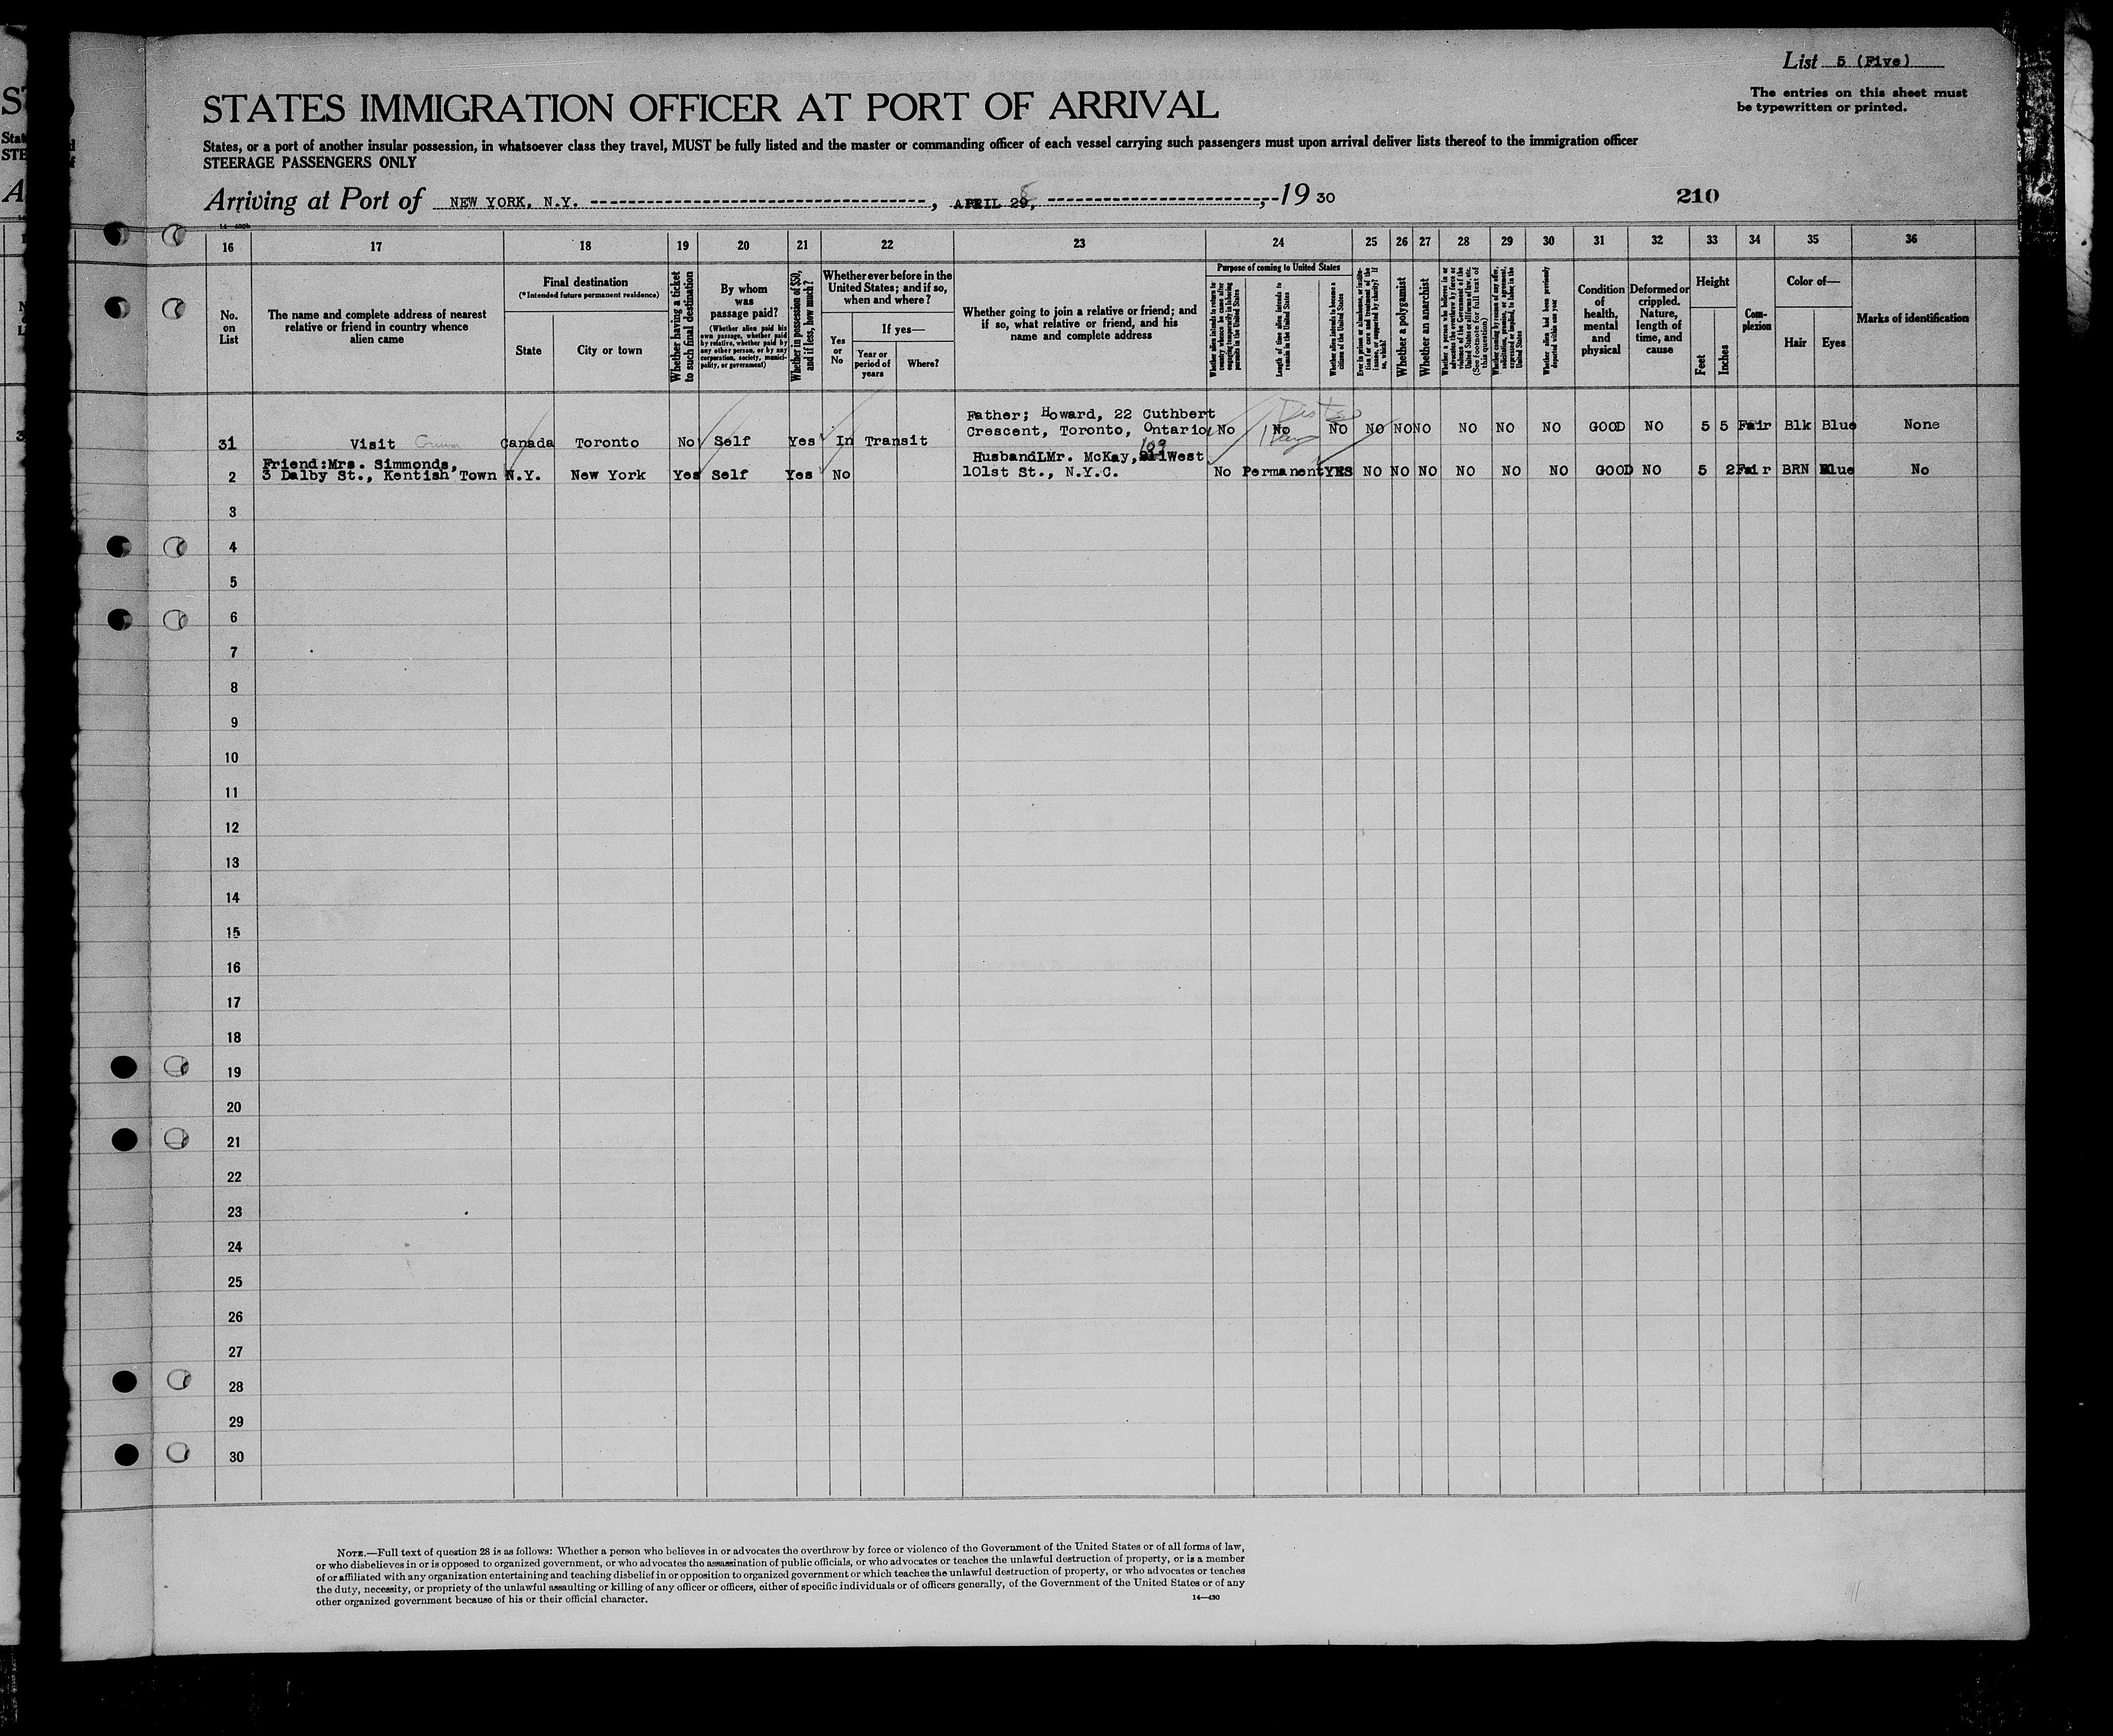 List 5 (Five)
The entries on this sheet must
be typewritten or printed.
STATES IMMIGRATION OFFICER AT PORT OF ARRIVAL
States, or a port of another insular possession, in whatsoever class they travel, MUST be fully listed and the master or commanding officer of each vessel carrying such passengers must upon arrival deliver lists thereof to the immigration officer
STEERAGE PASSENGERS ONLY
Arriving at Port of NEW YORK, N.Y. , APRIL 28, , 19 30
210
16 17 18 19 20 21 22 23 24 25 26 27 28 29 30 31 32 33 34 35 36
No.
on
List
The name and complete address of nearest
relative or friend in country whence
alien came
Final destination
(*Intended future permanent residence)
State
City or town
Whether having a ticket
to such final destination
By whom
was
passage paid?
(Whether alien paid his
own passage, whether paid
by relative, whether paid by
any other person, or by any
corporation, society, munici-
pality, or government)
Whether in possession of $50,
and if less, how much?
Whether ever before in the
United States; and if so,
when and where?
Yes
or
No
If yes—
Year or
period of
years
Where?
Whether going to join a relative or friend; and
if so, what relative or friend, and his
name and complete address
Purpose of coming to United States
Whether alien intends to return to
country whence he came after
engaging temporarily in laboring
pursuits in the United States
Length of time alien intends to
remain in the United States
Whether alien intends to become a
citizen of the United States
Ever in prison or almshouse, or institu-
tion for care and treatment of the
insane, or supported by charity? If
so, which?
Whether a polygamist
Whether an anarchist
Whether a person who believes in or
advocates the overthrow by force or
violence of the Government of the
United States or all forms of law, etc.
(See footnote for full text of
this question)
Whether coming by reason of any offer,
solicitation, promise, or agreement,
expressed or implied, to labor in the
United States
Whether alien had been previously
deported within one year
Condition
of
health,
mental
and
physical
Deformed or
crippled.
Nature,
length of
time, and
cause
Height
Feet
Inches
Com-
plexion
Color of—
Hair
Eyes
Marks of identification
Father; Howard, 22 Cuthbert
31 Visit Canada Toronto No Self Yes In Transit Crescent, Toronto, Ontario No No NO NO NO NO NO NO NO GOOD NO 5 5 Fair Blk Blue None
Friend:Mrs. Simmonds, HusbandLMr. McKay, West
2 3 Dalby St., Kentish Town N.Y. New York Yes Self Yes No 101st St., N.Y.C. No Permanent YES NO NO NO NO NO NO GOOD NO 5 2 Fair BRN Blue No
3
4
5
6
7
8
9
10
11
12
13
14
15
16
17
18
19
20
21
22
23
24
25
26
27
28
29
30
NOTE.—Full text of question 28 is as follows: Whether a person who believes in or advocates the overthrow by force or violence of the Government of the United States or of all forms of law,
or who disbelieves in or is opposed to organized government, or who advocates the assassination of public officials, or who advocates or teaches the unlawful destruction of property, or is a member
of or affiliated with any organization entertaining and teaching disbelief in or opposition to organized government or which teaches the unlawful destruction of property, or who advocates or teaches
the duty, necessity, or propriety of the unlawful assaulting or killing of any officer or officers, either of specific individuals or of officers generally, of the Government of the United States or of any
other organized government because of his or their official character.
14—430